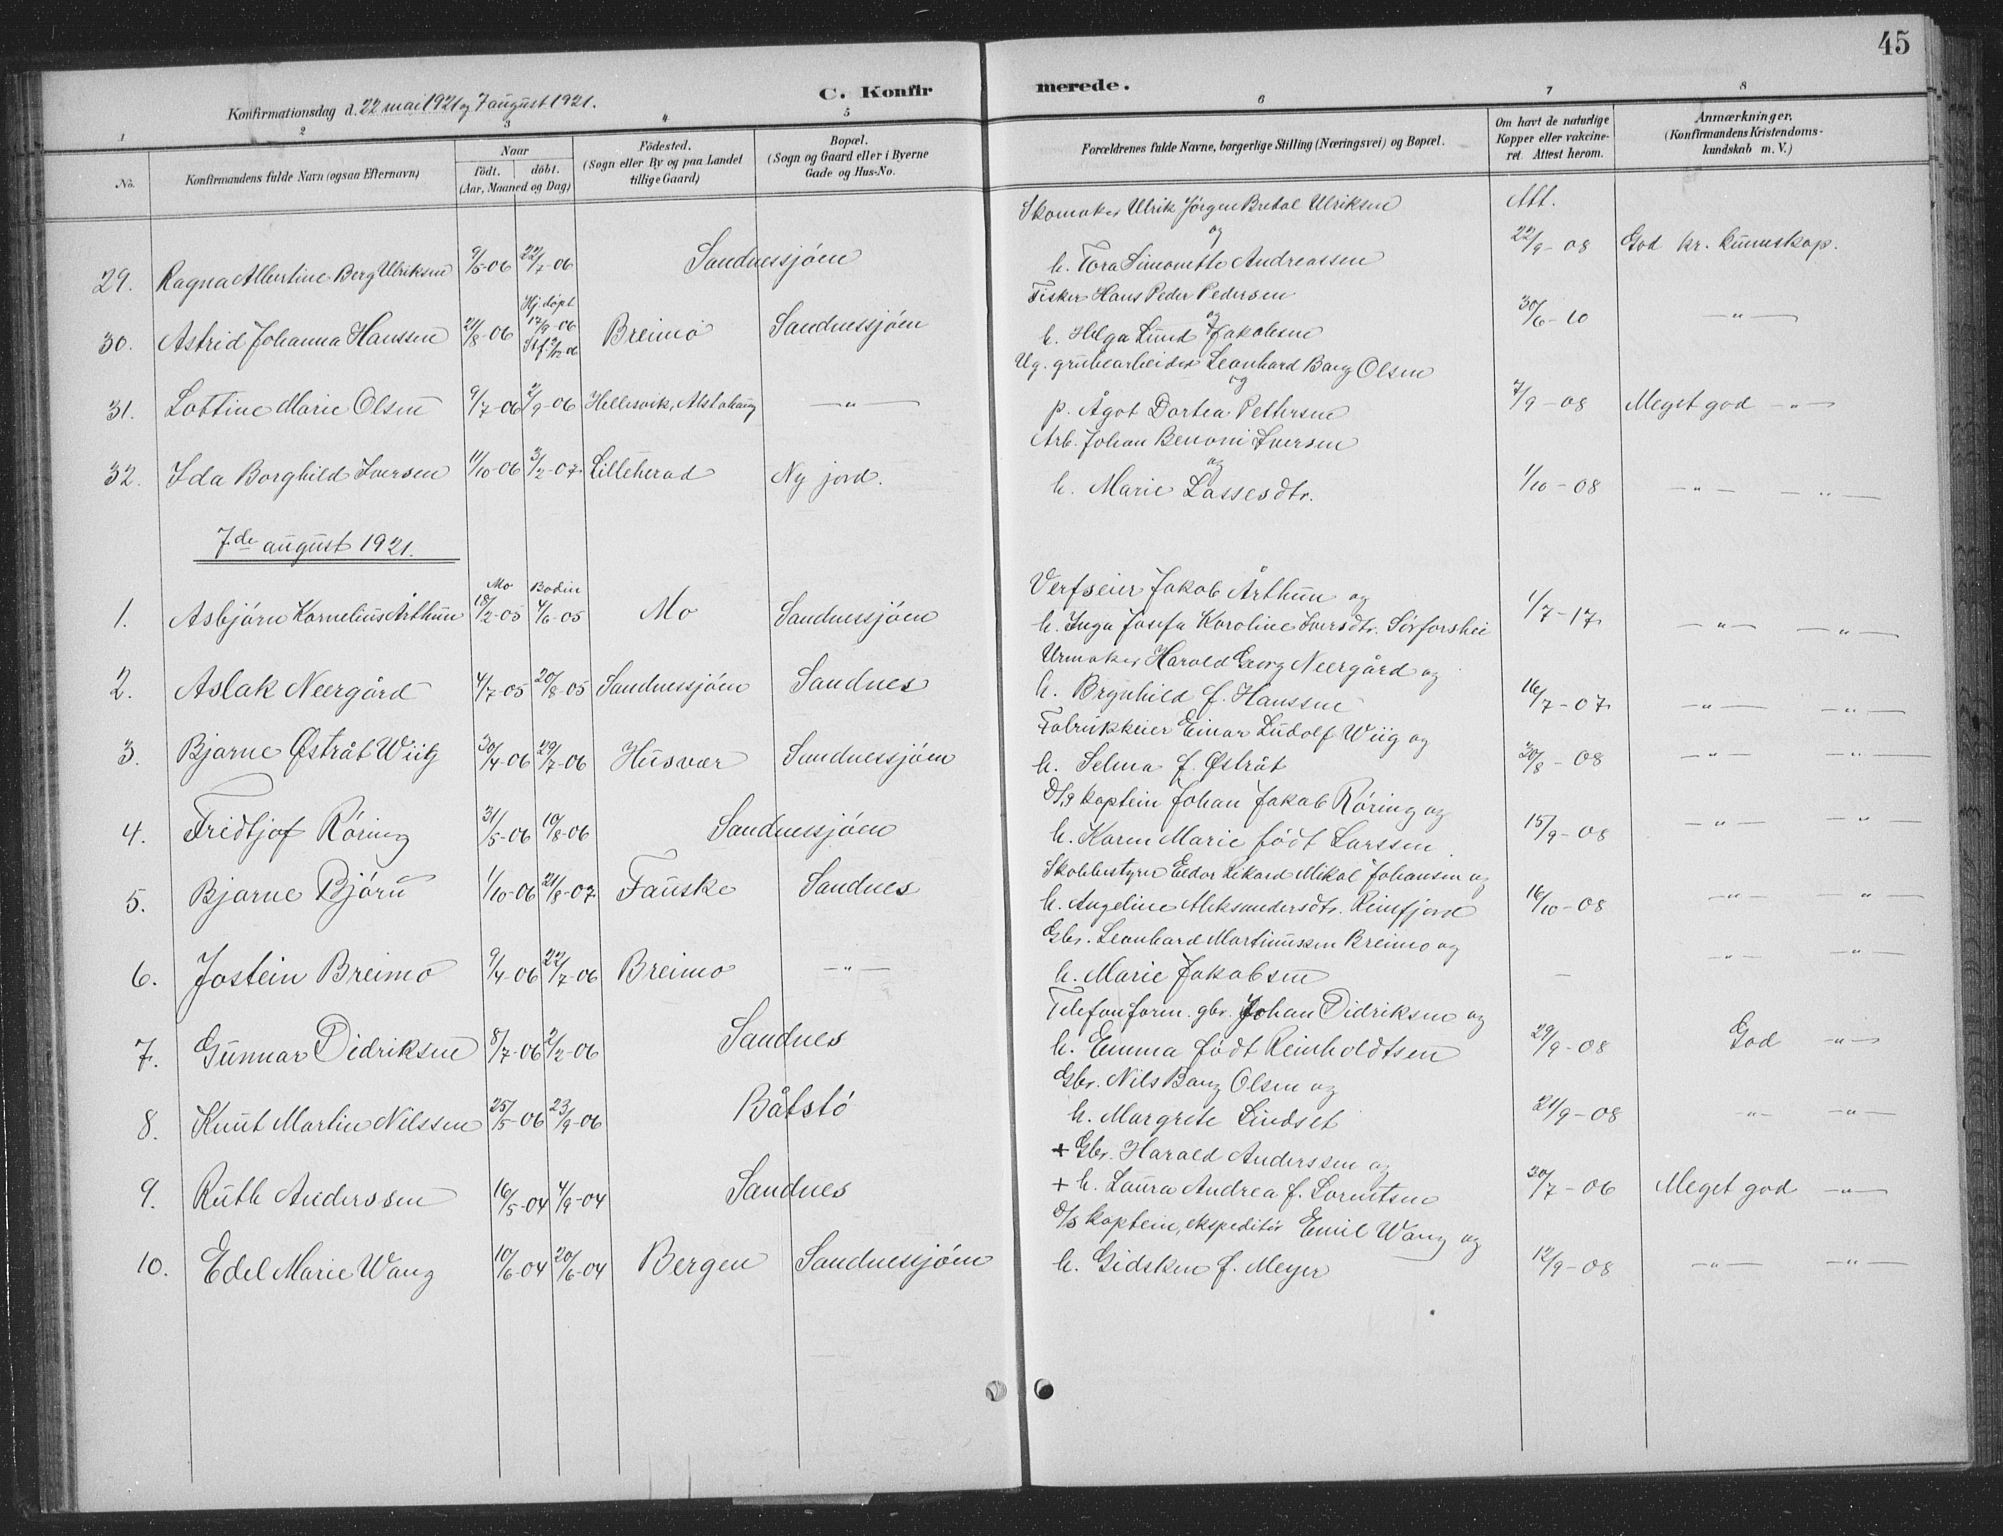 45
C. Konfirmerede.
Konfirmationsdag d. 22 mai 1921 og 7 august 1921.
1 2 3 4 5 6 7 8
No. Konfirmandens fulde Navn (ogsaa Efternavn) Naar födt. döbt. (Aar, Maaned og Dag) Födested. (Sogn eller By og paa Landet tillige Gaard) Bopæl. (Sogn og Gaard eller i Byerne Gade og Hus-No. Forældrenes fulde Navne, borgerlige Stilling (Næringsvei) og Bopæl. Om havt de naturlige Kopper eller vakcineret. Attest herom. Anmærkninger. (Konfirmandens Kristendomskundskab m. V.)
Skomaker Ulrik Jörgen Bretal Ulriksen Att.
og
29. Ragna Albertine Berg Ulriksen 9/5-06 22/7-06 Sandnessjöen h. Tora Simonette Andreassen 22/9-08 God kr. kunnskap.
Hj. döpt Fisker Hans Peder Pedersen
30. Astrid Johanna Hanssen 21/8-06 17/9-06 Breimo Sandnessjöen og 30/6-10 -"-
Stf. 2/12-06 h. Helga Lund Jakobsen
Ug. grubearbeider Leonhard Bang Olsen
og
31. Lottine Marie Olsen 9/7-06 2/9-06 Hellesvik, Alstahaug -"- p. Ågot Dortea Pettersen 7/9-08 Meget god -"-
Arb. Johan Benoni Iversen
og
32. Ida Borghild Iversen 11/10-06 3/2-07 Lilleherad Ny jord. h. Marie Lassesdtr. 1/10-08 -"- -"-
7de august 1921.
Mo Bodin Verfseier Jakob Årthun og
1. Asbjörn Kornelius Årthun 18/2-05 4/6-05 Mo Sandnessjöen h. Inga Josefa Karoline Iversdtr. Sörforshei 1/7-17 -"- -"-
Urmaker Harald Georg Neergård og
2. Aslak Neergård 4/7-05 20/8-05 Sandnessjöen Sandnes h. Brynhild f. Hanssen 16/7-07 -"- -"-
Fabrikkeier Einar Ludolf Wiig og
3. Bjarne Østråt Wiig 30/4-06 29/7-06 Husvær Sandnessjöen h. Selma f. Østråt 30/8-08 -"- -"-
D/s kaptein Johan Jakob Röring og
4. Fridtjof Röring 31/5-06 10/8-06 Sandnessjöen h. Karen Marie födt Larssen 15/9-08 -"- -"-
Skolebestyrer Eldor Rikard Mikal Johansen og
5. Bjarne Björu 1/10-06 21/8-07 Fauske Sandnes h. Angeline Aleksandersdtr. Reinfjord 16/10-08 -"- -"-
Gbr. Leonhard Martinussen Breimo og
6. Jostein Breimo 9/4-06 22/7-06 Breimo -"- h. Marie Jakobsen - -"- -"-
Telefonform. gbr. Johan Didriksen og
7. Gunnar Didriksen 8/7-06 2/12-06 Sandnes h. Emma födt Reinholdtsen 29/9-08 God -"-
Gbr. Nils Bang Olsen og
8. Knut Martin Nilssen 25/5-06 23/9-06 Båtstö h. Margrete Lindset 21/9-08 -"- -"-
+ Gbr. Harald Anderssen og
9. Ruth Anderssen 16/5-04 4/9-04 Sandnes + h. Laura Andrea f. Lorntsen 30/7-06 Meget god -"-
D/s kaptein, ekspeditör Emil Wang og
10. Edel Marie Wang 10/6-04 20/6-04 Bergen Sandnessjöen h. Gidsken f. Meyer 12/9-08 -"- -"-